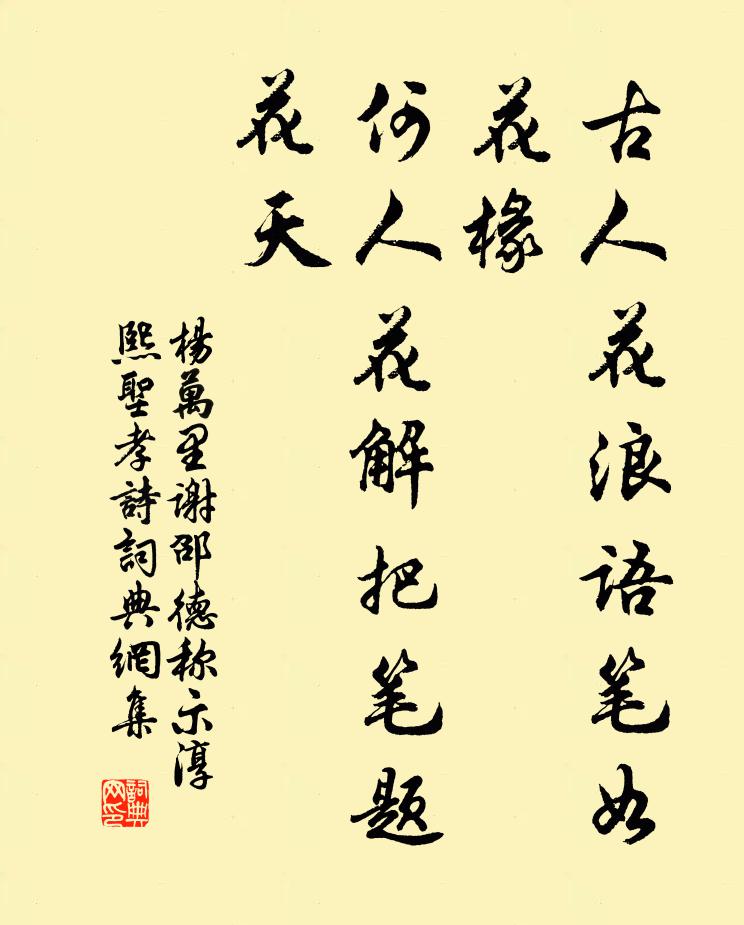 古人花浪语笔如
花椽
何人花解把笔题
花天
楊萬里謝邵德称示淳
熙聖孝詩詞典網集
詞典
网印